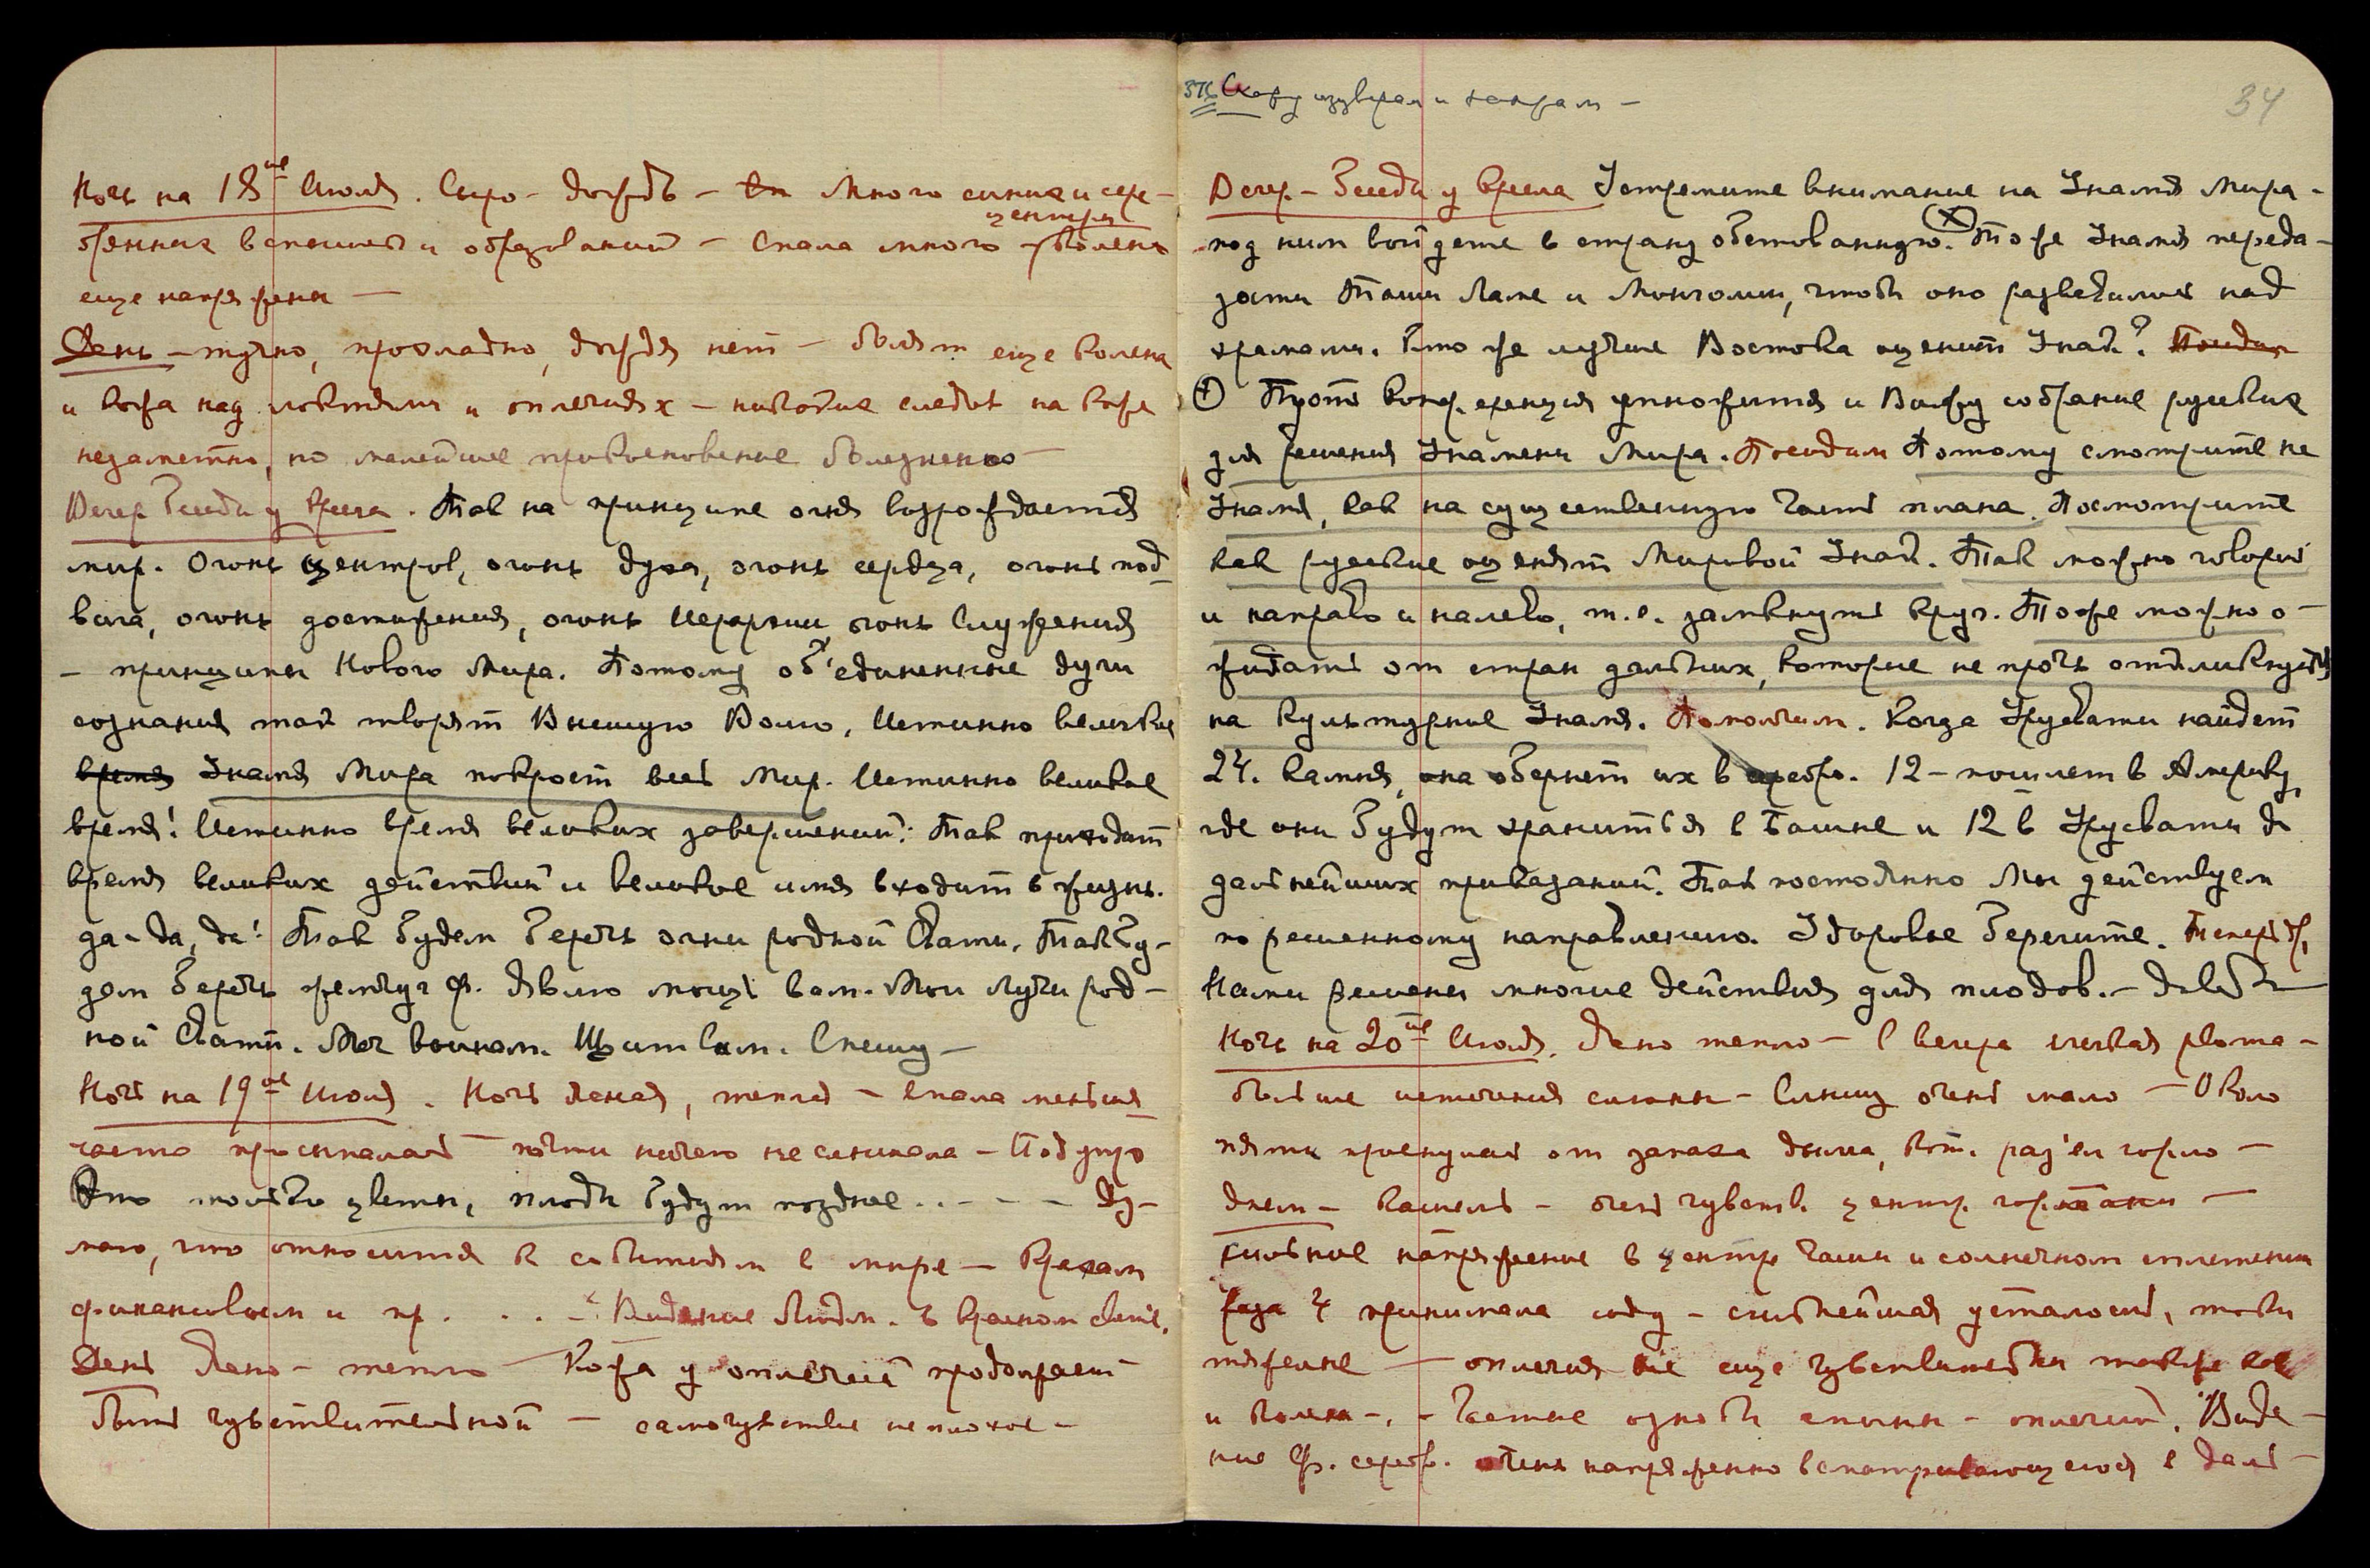 Ночь на 18ое Июля. Сыро – дождь – Много синих и сере-
бряных вспышек и образований – Спала много –
центры
колена
еще напряжены –
День – тучно, прохладно, дождя нет – болят еще колена
и кожа над локтями и оплечиях – никаких следов на коже
незаметно, но малейшее прикосновение болезненно –
Вечер. Беседа у Кресла. Так на принципе огня возрождается
мир. Огонь центров, огонь духа, огонь сердца, огонь под-
вига, огонь достижения, огонь Иерархии, огонь Служения
– принципы Нового Мира. Потому об'единенные дуги
сознания так творят Высшую Волю. Истинно великое
время Знамя Мира покроет весь Мир. Истинно великое
время! Истинно время великих завершений! Так приходит
время великих действий и великое имя входит в жизнь.
да–да, да! Так будем беречь огни родной Свати. Так бу-
дем беречь жемчуг Ф. Являю мощь вам. Мои лучи род-
ной Свати. Меч воинам. Щит вам. Спешу –
Ночь на 19ое Июля. Ночь ясная, теплая – спала меньше
часто просыпалась – почти ничего не слышала – Под утро
Это только цветы, плоды будут позднее . . – – – Ду-
маю, что относится к событиям в мире – Крахам
финансовым и пр. . . . – Видение Влад. в красном свете.
День Ясно – тепло – Кожа у оплечий продолжает
быть чувствительной – самочувствие неплохое –
34
Вечер – Беседа у Кресла Устремите внимание на Знамя Мира –
под ним войдете в страну обетованную. Тоже Знамя переда-
дости Таши Ламе и Монголии, чтобы оно развевалось над
храмами. Кто же лучше Востока оценит Знак?
Пусть конференция умножится и Вижу собрание русских
для решения Знамени Мира. Последим Потому смотрите на
Знамя, как на существенную часть плана. Посмотрите
как русские оценят Мировой Знак. Так можно говорить
и направо и налево, т.е. замкнуть круг. Тоже можно о-
жидать от стран дальних, которые не прочь откликнуться
на культурное Знамя. Помолчим. Когда Урусвати найдет
24. камня, она обернет их в серебро. 12 – пошлет в Америку,
где они будут храниться в Башне и 12 в Урусвати до
дальнейших приказаний. Так постоянно Мы действуем
по решенному направлению. Здоровье берегите.
Нами решены многие действия для плодов. – Довольно
Ночь на 20ое Июля. Ясно тепло – С вечера легкая рвота –
большие истечения слюны – Слышу очень мало – Около
пяти проснулась от запаха дыма, кот. раз'ел горло –
днем – кашель – очень чувств. центр. гортани –
сильное напряжение в центре Чаши и солнечном сплетении
раза 4 принимала соду – сильнейшая усталость, токи
тяжелые – оплечия все еще чувствительны также как
и колена – . – Частые ознобы спины – оплечий. Виде-
ние Ф. серебр. очень напряженно всматривающегося в даль –